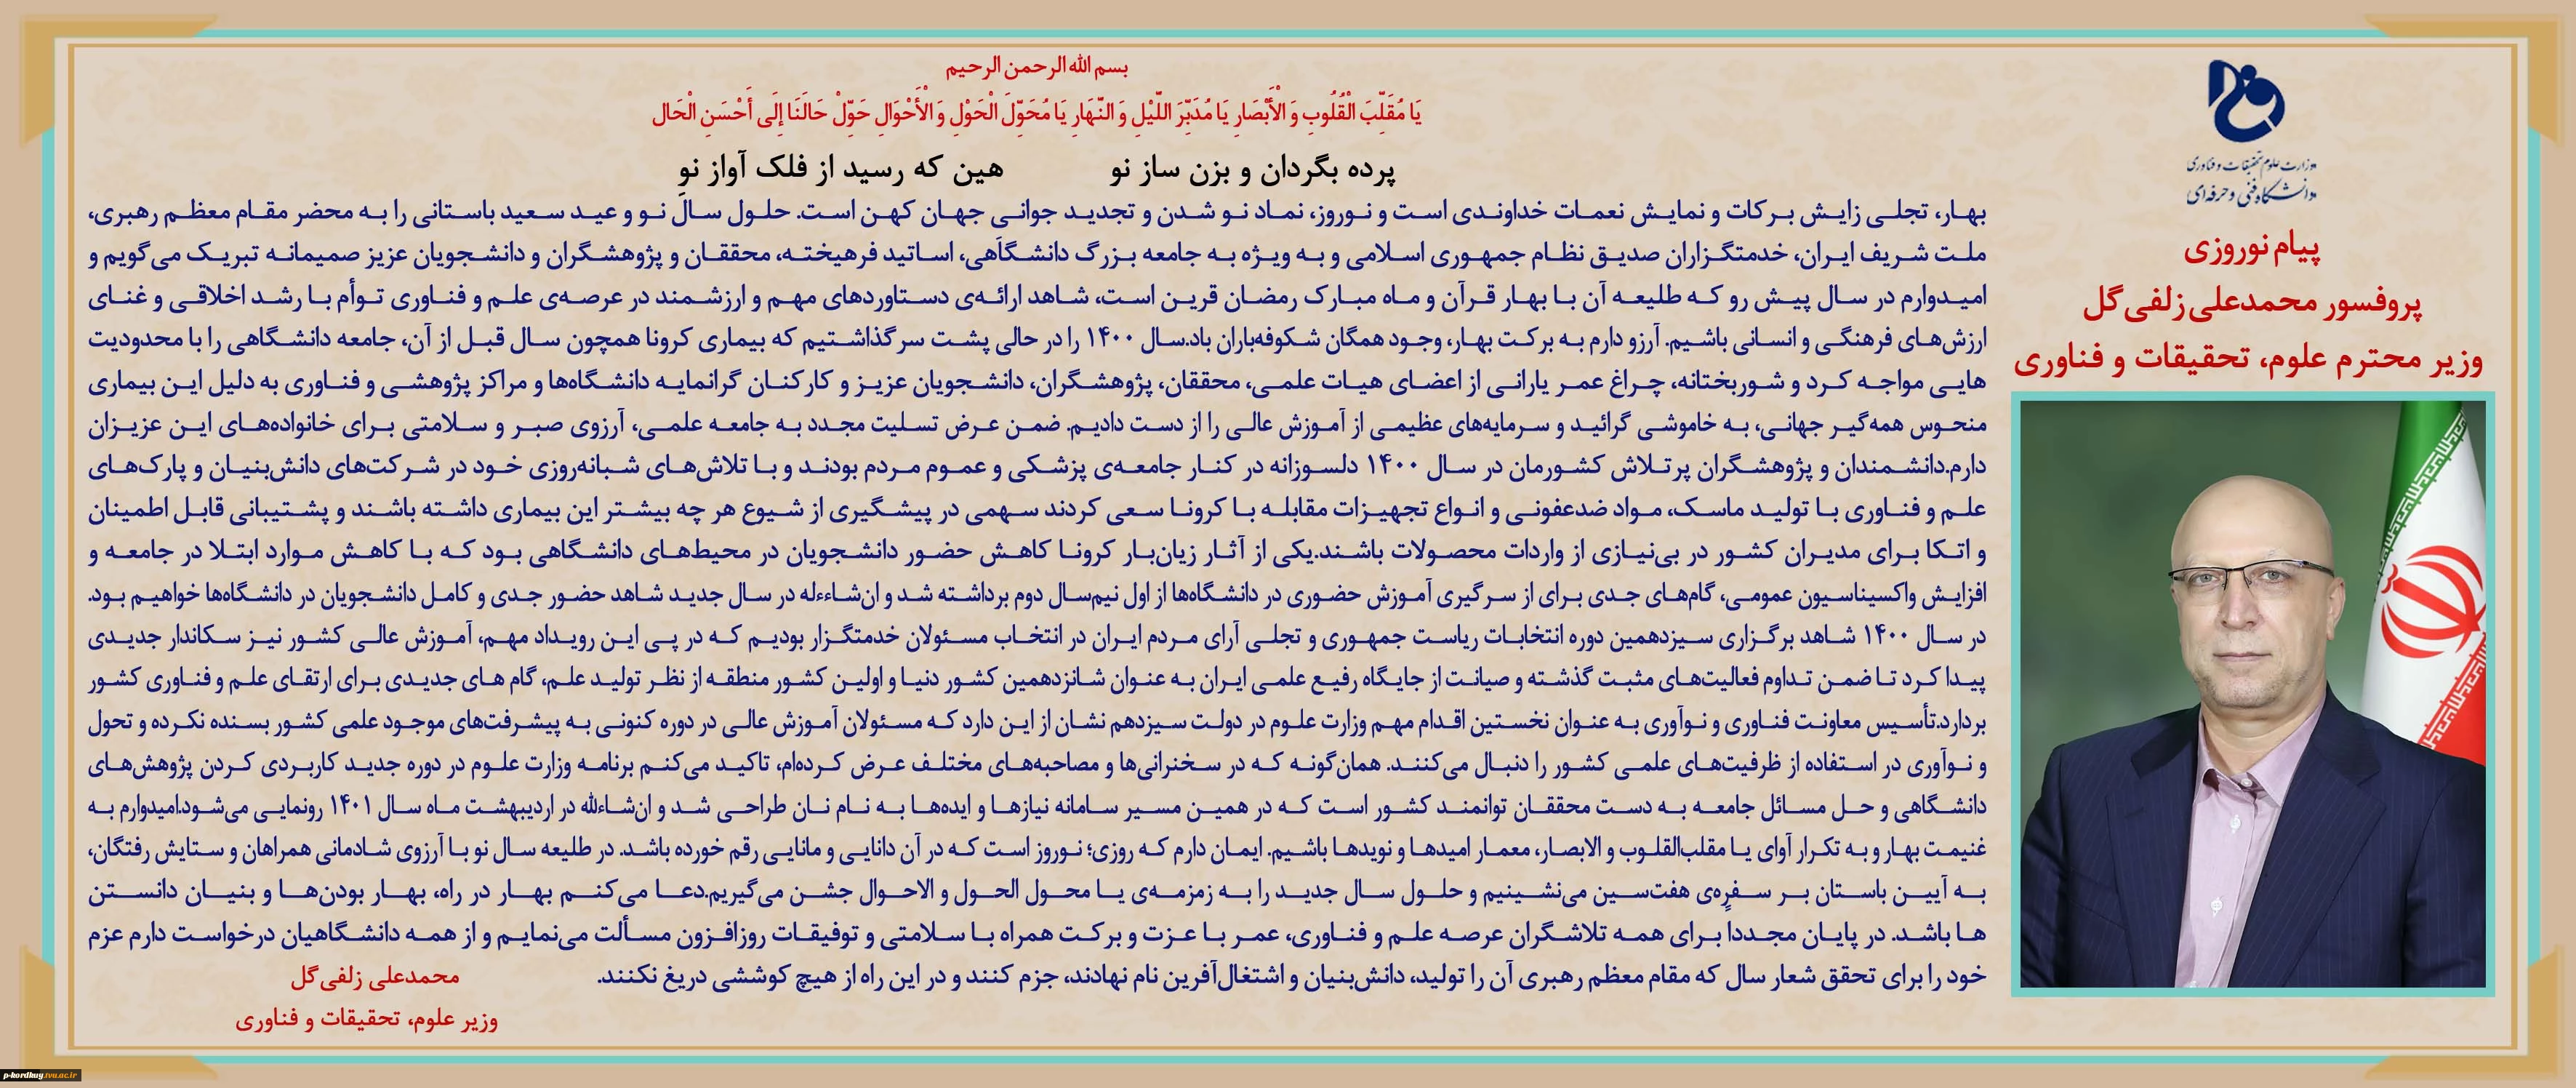 بسم الله الرحمن الرحیم
یَا مُقَلِّبَ الْقُلُوبِ وَ الْأَبْصَارِ یَا مُدَبِّرَ اللَّیْلِ وَ النَّهَارِ یَا مُحَوِّلَ الْحَوْلِ وَ الْأَحْوَالِ حَوِّلْ حَالَنَا إِلَی أَحْسَنِ الْحَال
پرده بگردان و بزن ساز نو هین که رسید از فلک آواز نو
وزارت علوم تحقیقات و فناوری
دانشگاه فنی و حرفه‌ای
پیام نوروزی
پروفسور محمدعلی زلفی‌گل
وزیر محترم علوم، تحقیقات و فناوری
بهار، تجلی زایش برکات و نمایش نعمات خداوندی است و نوروز، نماد نو شدن و تجدید جوانی جهان کهن است. حلول سال نو و عید سعید باستانی را به محضر مقام معظم رهبری،
ملت شریف ایران، خدمتگزاران صدیق نظام جمهوری اسلامی و به ویژه به جامعه بزرگ دانشگاهی، اساتید فرهیخته، محققان و پژوهشگران و دانشجویان عزیز صمیمانه تبریک می‌گویم و
امیدوارم در سال پیش رو که طلیعه آن با بهار قرآن و ماه مبارک رمضان قرین است، شاهد ارائه‌ی دستاوردهای مهم و ارزشمند در عرصه‌ی علم و فناوری توأم با رشد اخلاقی و غنای
ارزش‌های فرهنگی و انسانی باشیم. آرزو دارم به برکت بهار، وجود همگان شکوفه‌باران باد.سال ۱۴۰۰ را در حالی پشت سر گذاشتیم که بیماری کرونا همچون سال قبل از آن، جامعه دانشگاهی را با محدودیت
هایی مواجه کرد و شوربختانه، چراغ عمر یارانی از اعضای هیات علمی، محققان، پژوهشگران، دانشجویان عزیز و کارکنان گرانمایه دانشگاه‌ها و مراکز پژوهشی و فناوری به دلیل این بیماری
منحوس همه‌گیر جهانی، به خاموشی گرائید و سرمایه‌های عظیمی از آموزش عالی را از دست دادیم. ضمن عرض تسلیت مجدد به جامعه علمی، آرزوی صبر و سلامتی برای خانواده‌های این عزیزان
دارم.دانشمندان و پژوهشگران پرتلاش کشورمان در سال ۱۴۰۰ دلسوزانه در کنار جامعه‌ی پزشکی و عموم مردم بودند و با تلاش‌های شبانه‌روزی خود در شرکت‌های دانش‌بنیان و پارک‌های
علم و فناوری با تولید ماسک، مواد ضدعفونی و انواع تجهیزات مقابله با کرونا سعی کردند سهمی در پیشگیری از شیوع هر چه بیشتر این بیماری داشته باشند و پشتیبانی قابل اطمینان
و اتکا برای مدیران کشور در بی‌نیازی از واردات محصولات باشند.یکی از آثار زیان‌بار کرونا کاهش حضور دانشجویان در محیط‌های دانشگاهی بود که با کاهش موارد ابتلا در جامعه و
افزایش واکسیناسیون عمومی، گام‌های جدی برای از سرگیری آموزش حضوری در دانشگاه‌ها از اول نیم‌سال دوم برداشته شد و ان‌شاءءله در سال جدید شاهد حضور جدی و کامل دانشجویان در دانشگاه‌ها خواهیم بود.
در سال ۱۴۰۰ شاهد برگزاری سیزدهمین دوره انتخابات ریاست جمهوری و تجلی آرای مردم ایران در انتخاب مسئولان خدمتگزار بودیم که در پی این رویداد مهم، آموزش عالی کشور نیز سکاندار جدیدی
پیدا کرد تا ضمن تداوم فعالیت‌های مثبت گذشته و صیانت از جایگاه رفیع علمی ایران به عنوان شانزدهمین کشور دنیا و اولین کشور منطقه از نظر تولید علم، گام های جدیدی برای ارتقای علم و فناوری کشور
بردارد.تأسیس معاونت فناوری و نوآوری به عنوان نخستین اقدام مهم وزارت علوم در دولت سیزدهم نشان از این دارد که مسئولان آموزش عالی در دوره کنونی به پیشرفت‌های موجود علمی کشور بسنده نکرده و تحول
و نوآوری در استفاده از ظرفیت‌های علمی کشور را دنبال می‌کنند. همان‌گونه که در سخنرانی‌ها و مصاحبه‌های مختلف عرض کرده‌ام، تاکید می‌کنم برنامه وزارت علوم در دوره جدید کاربردی کردن پژوهش‌های
دانشگاهی و حل مسائل جامعه به دست محققان توانمند کشور است که در همین مسیر سامانه نیازها و ایده‌ها به نام نان طراحی شد و ان‌شاءالله در اردیبهشت ماه سال ۱۴۰۱ رونمایی می‌شود.امیدوارم به
غنیمت بهار و به تکرار آوای یا مقلب‌القلوب و الابصار، معمار امیدها و نویدها باشیم. ایمان دارم که روزی؛ نوروز است که در آن دانایی و مانایی رقم خورده باشد. در طلیعه سال نو با آرزوی شادمانی همراهان و ستایش رفتگان،
به آیین باستان بر سفره‌ی هفت‌سین می‌نشینیم و حلول سال جدید را به زمزمه‌ی یا محول الحول و الاحوال جشن می‌گیریم.دعا می‌کنم بهار در راه، بهار بودن‌ها و بنیان دانستن
ها باشد. در پایان مجددا برای همه تلاشگران عرصه علم و فناوری، عمر با عزت و برکت همراه با سلامتی و توفیقات روزافزون مسألت می‌نمایم و از همه دانشگاهیان درخواست دارم عزم
خود را برای تحقق شعار سال که مقام معظم رهبری آن را تولید، دانش‌بنیان و اشتغال‌آفرین نام نهادند، جزم کنند و در این راه از هیچ کوششی دریغ نکنند.
محمدعلی زلفی‌گل
وزیر علوم، تحقیقات و فناوری
p-kordkuy.tvu.ac.ir